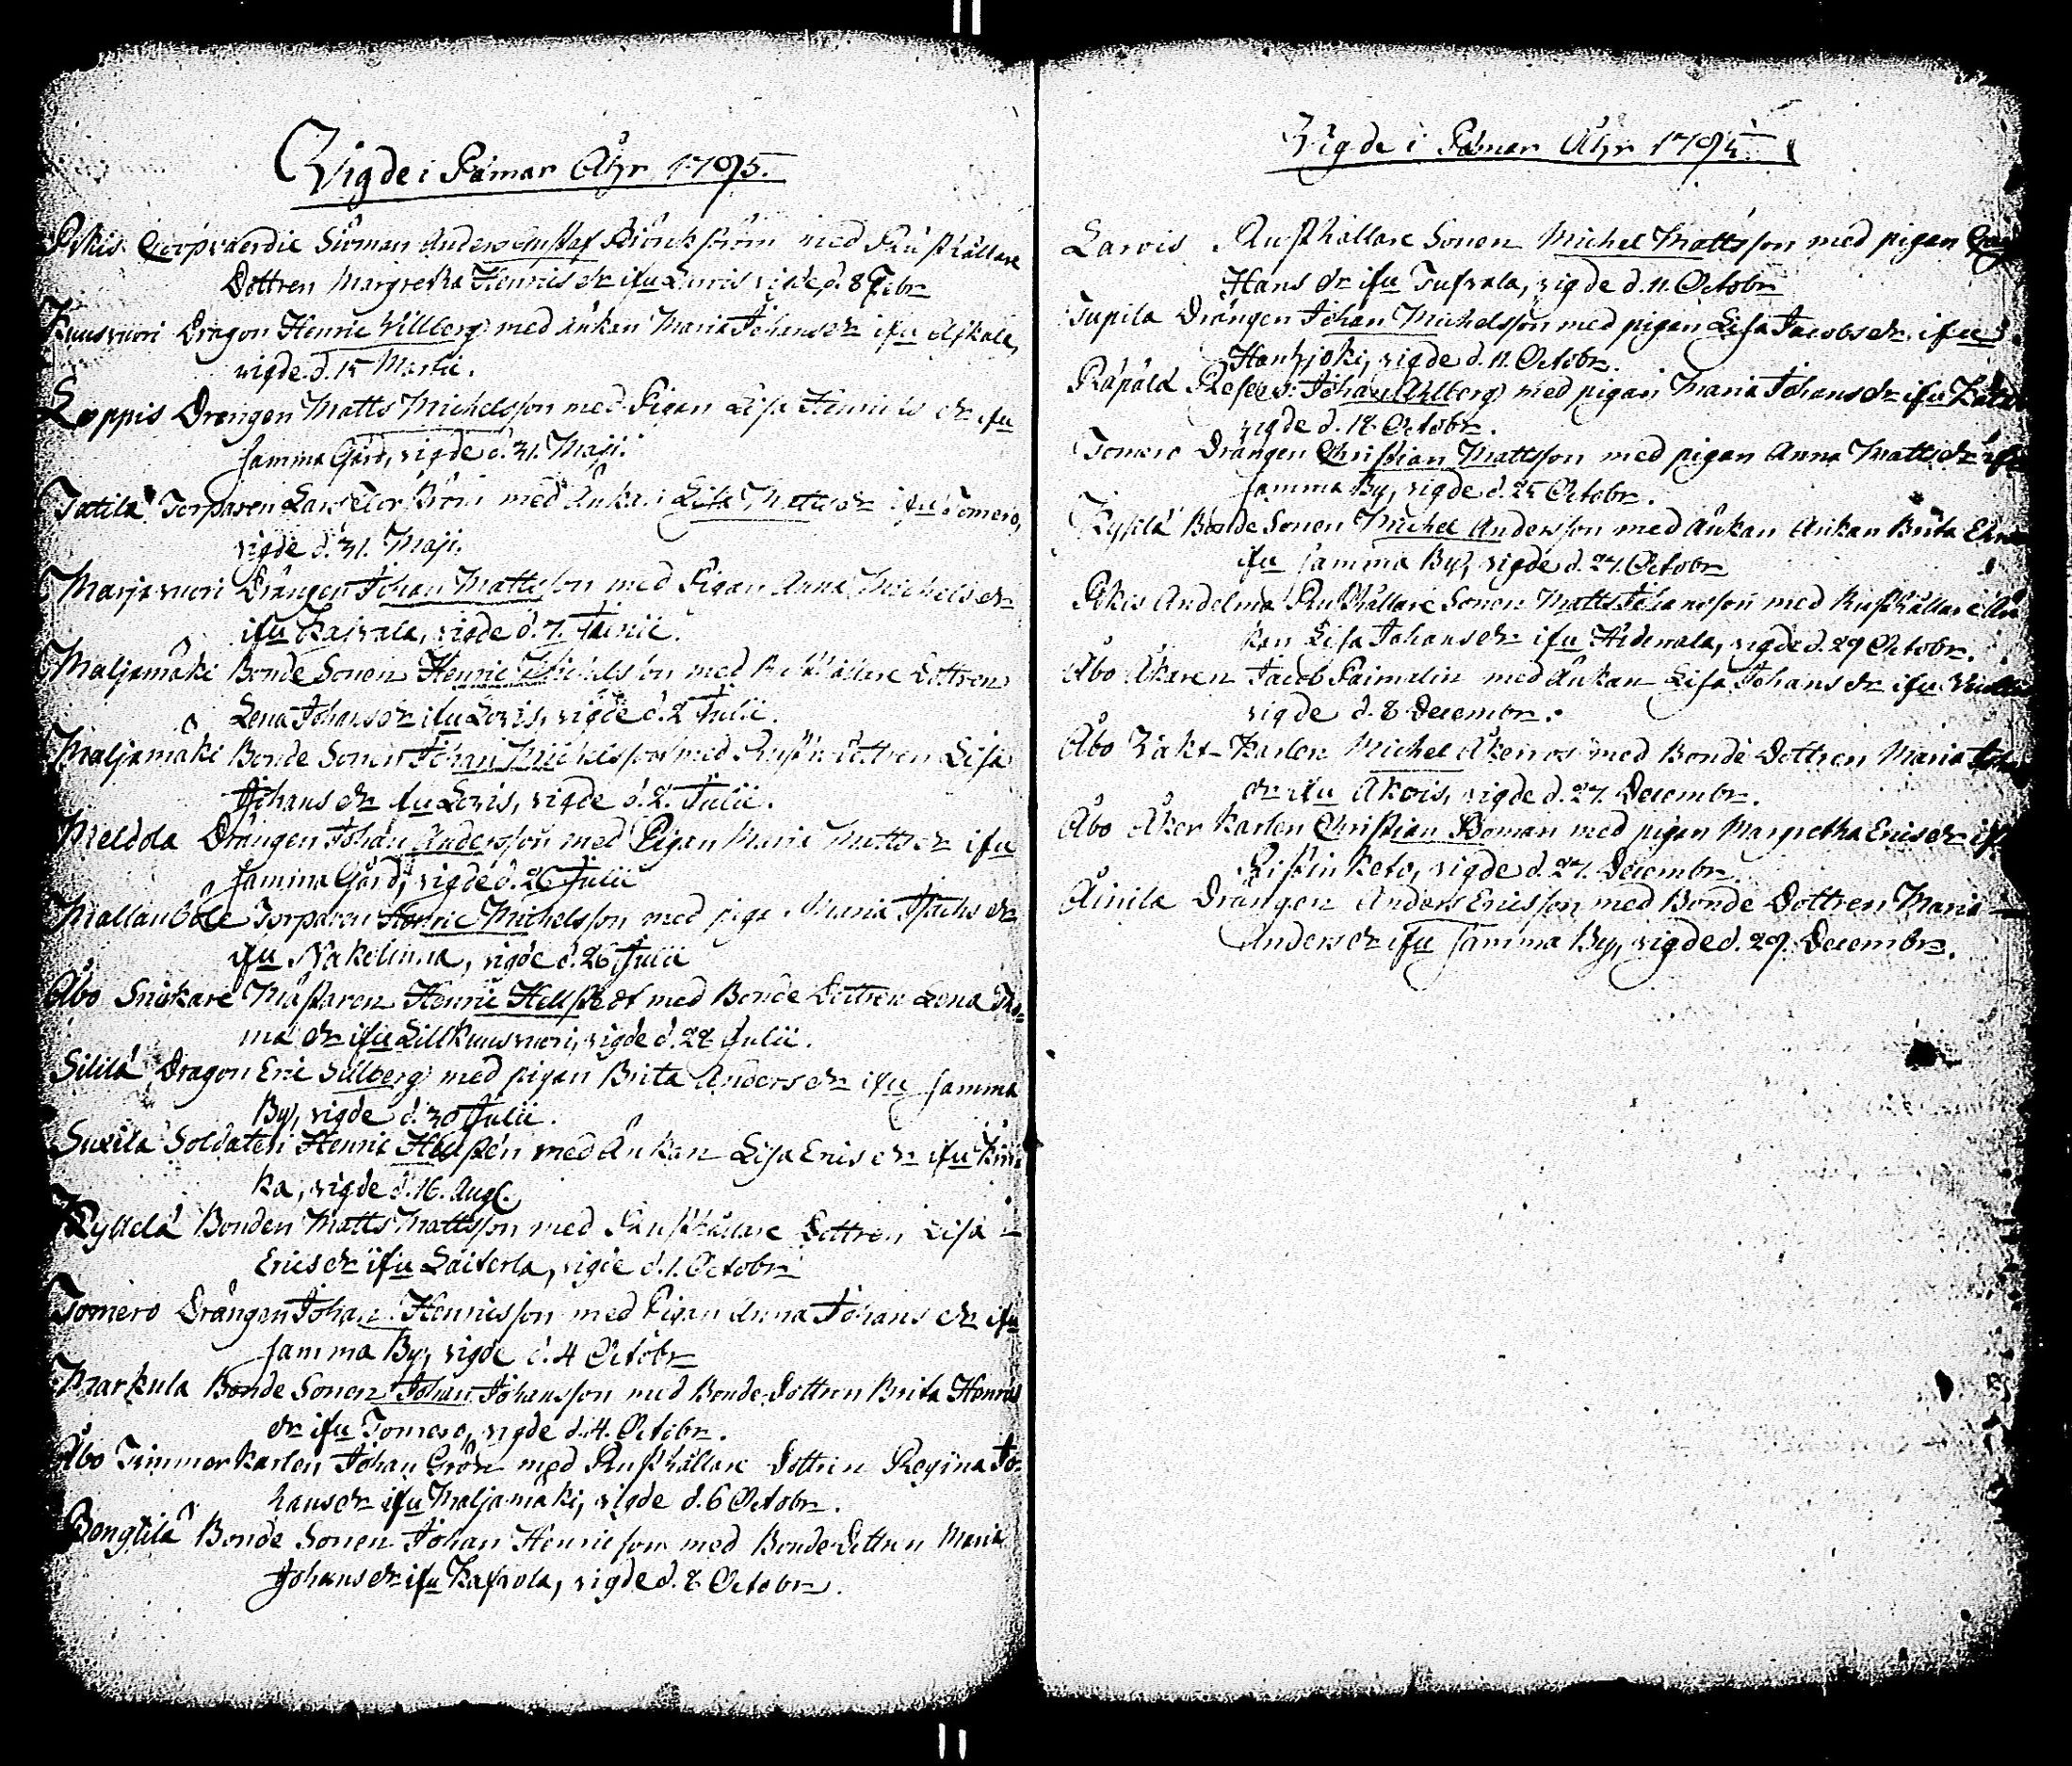 Vigde i Pämar Åhr 1795.
Pikis Coopvaerdie Siöman Anders Gustaf Biörckström med Rusthållare
Dottren Margretha Henrics dr ifu Lurvis vigde d. 8 Febr
Kuusvuori Dragon Henric Willberg med Änkan Maria Johans dr ifu Askala,
vigde d. 15 Martii.
Loppis Drengen Matts Michelsson med Pigan Lisa Henrics dr ifu
samma Gård, vigde d. 31. Maji.
Tatila Torparen Lars Florström med Änkan Lisa Matts dr ifu Tomero,
vigde d. 31. Maji.
Marjavuori Drängen Johan Mattsson med Pigan Anna Michels dr
ifu Kaivala, vigde d. 7. Junii.
Maljamäki Bonde Sonen Henric Michelsson med Rusthållare Dottren
Lena Johans dr ifu Lovis, vigde d. 2 Julii.
Maljamäki Bonde Sonen Johan Michelsson med Rusth. Dottren Lisa
Johans dr ifu Lovis, vigde d. 2. Julii.
Meldola Drängen Johan Andersson med Pigan Maria Matts dr ifu
samma Gård, vigde d. 26 Julii
Mallanböle Torparen Henric Michelsson med pigan Maria Isachs dr
ifu Nakolinna, vigde d. 26 Julii
Åbo Snickare Mästaren Henric Hellstedt med Bonde Dottren Lena Tho-
mä dr ifu Lillkuusvuori, vigde d. 28 Julii.
Sililä Dragon Eric Sillberg med pigan Brita Anders dr ifu samma
By, vigde d. 30 Julii.
Suxila Soldaten Henric Hellstén med Änkan Lisa Erics dr ifu
ka, vigde d. 16. Aug.
Kyllelä Bonden Matts Mattsson med Rusthållare Dottren Lisa
Erics dr ifu Läiterla, vigde d. 1. Octobr
Tomero Drängen Johan Henricsson med Pigan Anna Johans dr ifu
samma By, vigde d. 4 Octobr
Markula Bonde Sonen Johan Johansson med Bonde Dottren Brita Henrics
dr ifu Tomero, vigde d. 4. Octobr.
Åbo Timmerkarlen Johan Grön med Rusthållare Dottren Regina Jo-
hans dr ifu Maljamäki, vigde d. 6 Octobr.
Bengtilä Bonde Sonen Johan Henricsson med Bonde Dottren Maria
Johans dr ifu Kaivola, vigde d. 8 Octobr.
Vigde i Pämar Åhr 1795.
Larvis Rusthållare Sonen Michel Mattsson med pigan
Hans dr ifu Tufvala, vigde d. 11. Octobr
Tupila Drängen Johan Michelsson med pigan Lisa Jacobs dr ifu
Hanhjoki, vigde d. 11. Octobr.
Räpälä Reserv: Johan Ahlberg med pigan Maria Johans dr ifu
vigde d. 18 Octobr.
Tomero Drängen Christian Mattsson med pigan Anna Matts dr ifu
samma By, vigde d. 25 Octobr.
Kysilä Bonde Sonen Michel Andersson med Änkan Änkan Brita
ifu samma By, vigde d. 27. Octobr
Pikis Andelma Rusthållare Sonen Matts Johansson med Rusthållare Än-
kan Lisa Johans dr ifu Hidenvala, vigde d. 29 Octobr.
Åbo Åkaren Jacob Paimalin med Änkan Lisa Johans dr ifu
vigde d. 8 Decembr.
Åbo Vakt-Karlen Michel Åkerros med Bonde Dottren Maria
dr ifu Akois, vigde d. 27. Decembr.
Åbo Åker Karlen Christian Boman med pigan Margretha Erics dr ifu
Ristinketo, vigde d. 27. Decembr.
Äinila Drängen Anders Ericsson med Bonde Dottren Maria
Anders dr ifu samma By, vigde d. 29. Decembr.